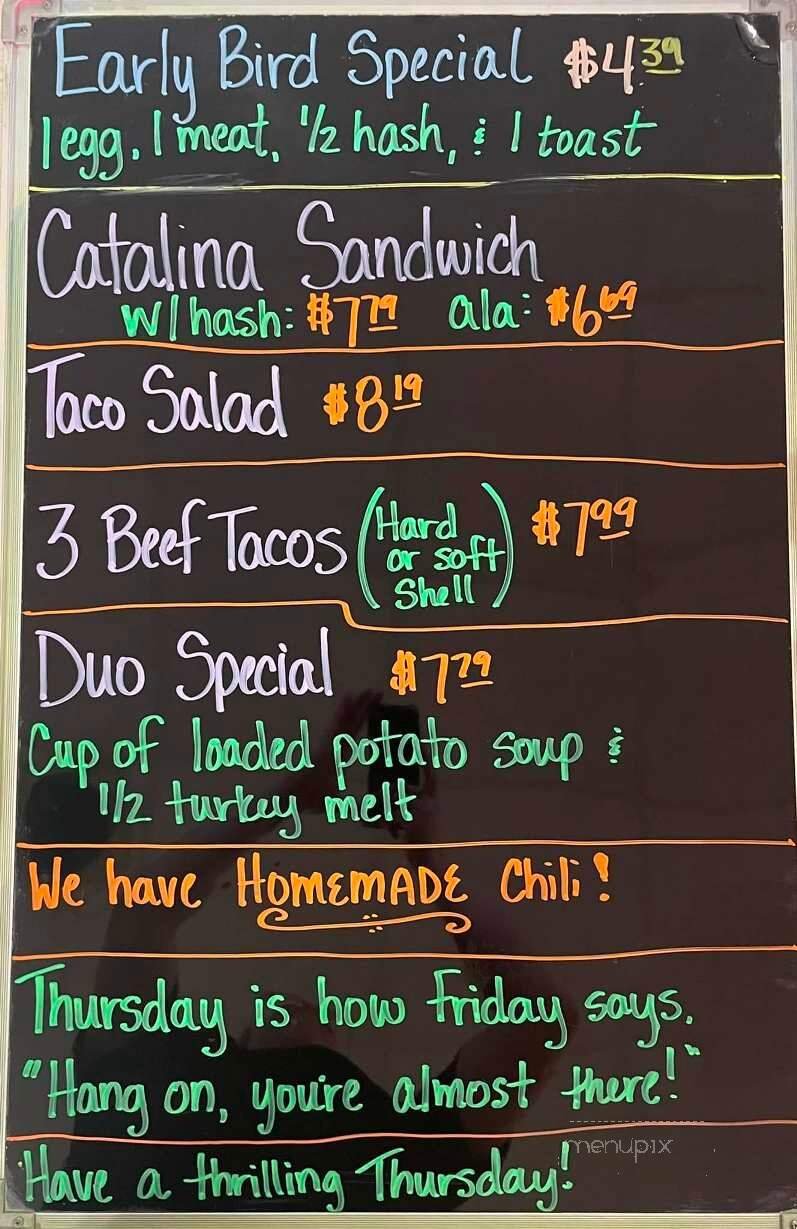 Early Bird Special $4.39
1 egg, 1 meat, 1/2 hash, & 1 toast
Catalina Sandwich
w/hash: $7.79 ala: $6.69
Taco Salad $8.19
3 Beef Tacos (Hard or soft Shell) $7.99
Duo Special $7.79
Cup of loaded potato soup &
1/2 turkey melt
We have HOMEMADE Chili!
Thursday is how Friday says,
"Hang on, you're almost there!"
menupix
Have a thrilling Thursday!